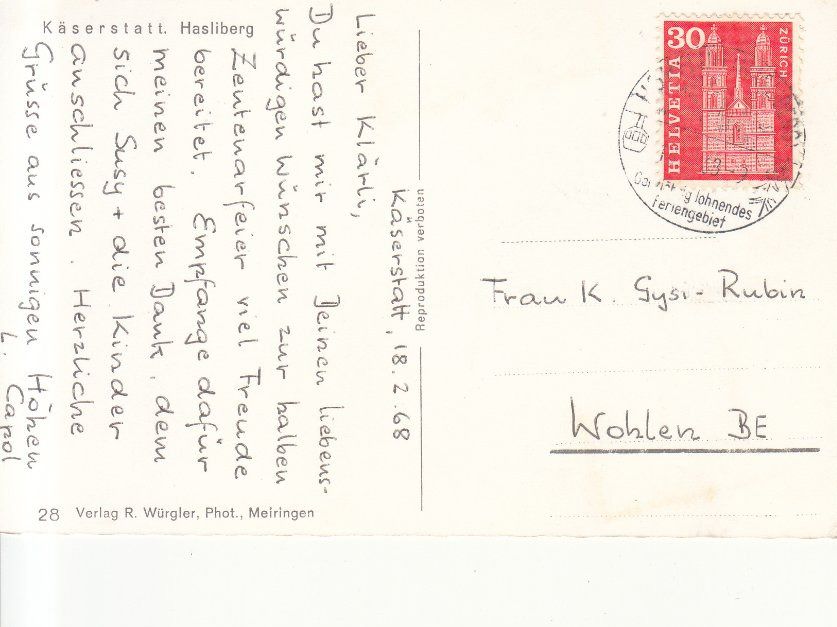 Käserstatt. Hasliberg
Käserstatt, 18.2.68
Lieber Klärli,
Du hast mir mit Deinen liebens-
würdigen Wünschen zur halben
Zentenarfeier viel Freude
bereitet. Empfange dafür
meinen besten Dank, dem
sich Susy + die Kinder
anschliessen. Herzliche
Grüsse aus sonnigen Höhen
L. Carol
28 Verlag R. Würgler, Phot., Meiringen
Reproduktion verboten
30
HELVETIA
ZÜRICH
lohnendes
Feriengebiet
Frau K. Gysi-Rubin
Wohlen BE